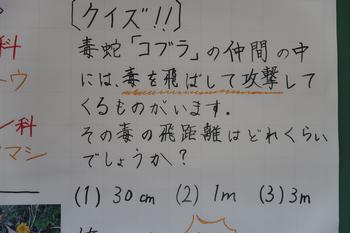 [クイズ!!]
毒蛇「コブラ」の仲間の中
には、毒を飛ばして攻撃して
くるものがいます。
その毒の飛距離はどれくらい
でしょうか?
(1) 30cm (2) 1m (3) 3m
科
トウ
ン科
マシ